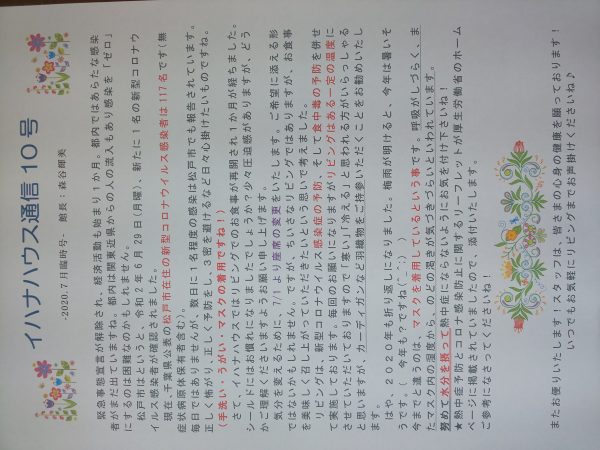 イハナハウス通信 10号
-2020.7月臨時号- 館長：森谷
緊急事態宣言が解除され、経済活動も始まり1か月、都内ではあらたな感染
者がまだ出ていますね。都内は関東近県からの人の流入もあり感染を「ゼロ」
にするのは困難なのかもしれません。
松戸市というと、令和2年6月29日(月曜)、新たに1名の新型コロナウ
イルス感染者が確認されました。
現在、千葉県公表の松戸市在住の新型コロナウイルス感染者は117名です(無
症状病原体保有者含む)。
毎日ではありませんが、数日に1名程度の感染は松戸市でも報告されています。
正しく怖がり、正しく予防をし、3密を避けるなど日々心掛けたいものですね。
(手洗い・うがい・マスクの着用ですね！)
さて、イハナハウスではリビングでのお食事が再開され1か月が経ちました。
シールドにはお慣れになりましたでしょうか？少々圧迫感がありますが、どう
かご理解くださいますようお願い申し上げます。
気分を変えるために、7/1より座席の変更をいたします。ご希望に添える形
ではないかもしれません。ですが、ちいさなリビングではありますが、お食事
を美味しく召し上がっていただきたいという思いで考えました。
リビングは、新型コロナウィルス感染症の予防、そして食中毒の予防を併せ
て実施しております。毎回のお願いになりますがリビングはある一定の温度に
させていただいておりますので「寒い」「冷える」と思われる方がいらっしゃる
と思いますが、カーディガンなど羽織物をご持参いただくことをお勧めいたし
ます。
はや、2020年も折り返しになりました。梅雨が明けると、今年は暑いそ
うです。(今年も？ですね(^_^;))
今までと違うのは、マスクを着用しているという事です。呼吸がしづらく、ま
たマスク内の湿度から、のどの渇きが気づきづらいといわれています。
努めて水分を摂って熱中症にならないようにお気を付け下さいね！
★熱中症予防とコロナ感染防止に関するリーフレットが厚生労働省のホーム
ページに掲載されていましたので、添付いたします。
ご参考になさってくださいね！
またお便りいたします！スタッフは、皆さまの心身の健康を願っております！
いつでもお気軽にリビングまでお声掛けくださいね♪